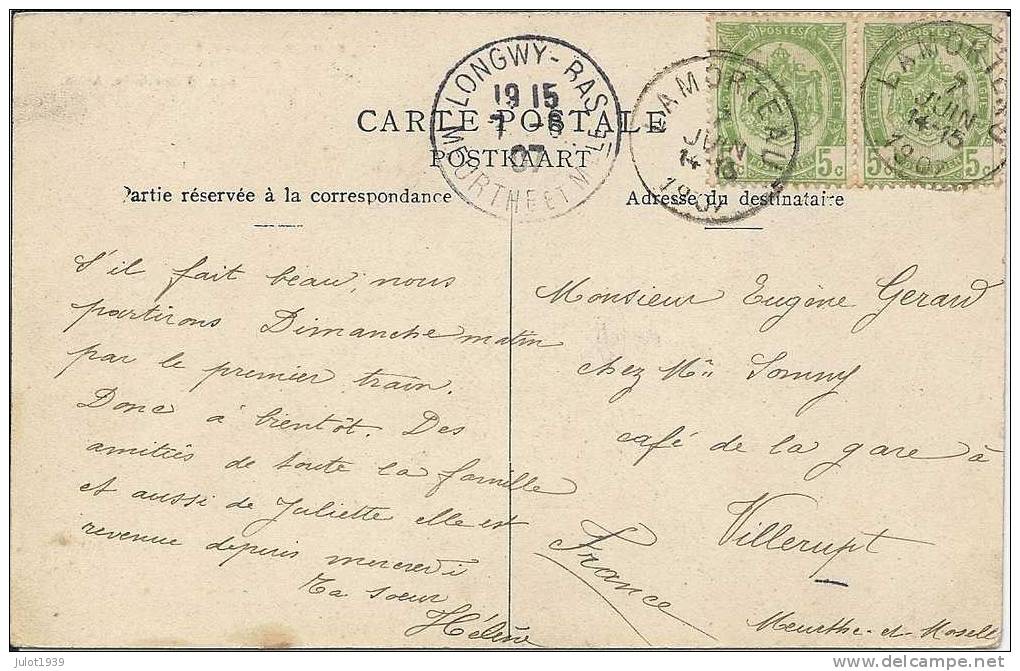 CARTE POSTALE
POSTKAART
Partie réservée à la correspondance
Adresse du destinataire
LONGWY-BAS
19 15
7 -6
07
MEURTHE ET MLLE
LAMORTEAU
7
JUIN
14-15
1907
LAMORTEAU
7
JUIN
14-15
1907
POSTES
5c
POSTES
5c
S'il fait beau, nous
partirons Dimanche matin
par le premier train.
Donc à bientôt. Des
amitiés de toute la famille
et aussi de Juliette elle est
revenue depuis mercredi
Ta soeur
Hélène
Monsieur Eugène Gerard
chez Mr
café de la gare à
Villerupt
France
Meurthe-et-Moselle
julot1939
delcampe.net